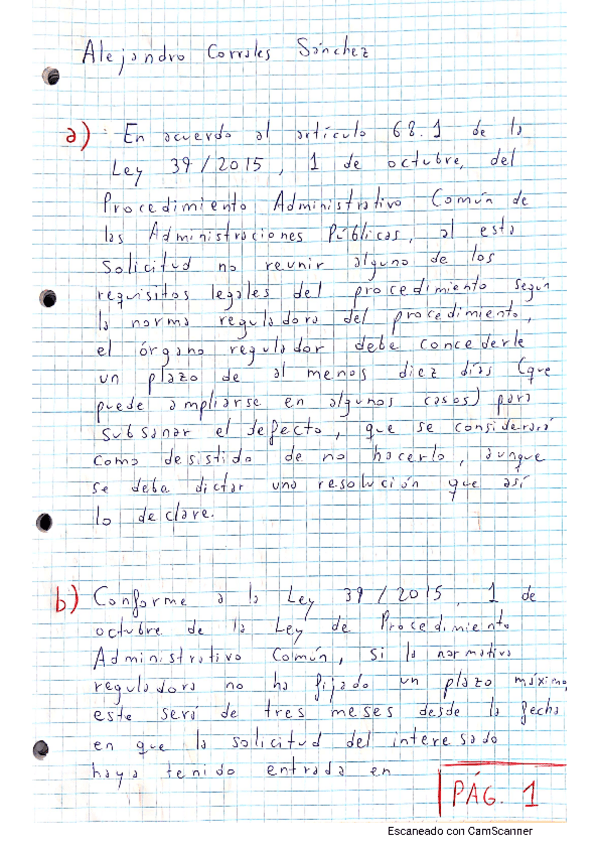 Alejandro Corrales Sánchez
a) En acuerdo al artículo 68.1 de la
Ley 39/2015, 1 de octubre, del
Procedimiento Administrativo Común de
las Administraciones Públicas, al esta
solicitud no reunir alguno de los
requisitos legales del procedimiento según
la norma reguladora del procedimiento,
el órgano regulador debe concederle
un plazo de al menos diez días (que
puede ampliarse en algunos casos) para
subsanar el defecto, que se considerará
como desistido de no hacerlo, aunque
se deba dictar una resolución que así
lo declare.
b) Conforme a la Ley 39/2015, 1 de
octubre de la Ley de Procedimiento
Administrativo Común, si la normativa
reguladora no ha fijado un plazo máximo,
este será de tres meses desde la fecha
en que la solicitud del interesado
haya tenido entrada en
PÁG. 1
Escaneado con CamScanner